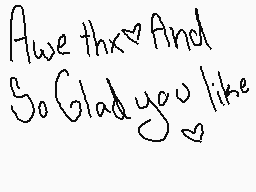 Awe thx♡ And
So Glad you like
♡